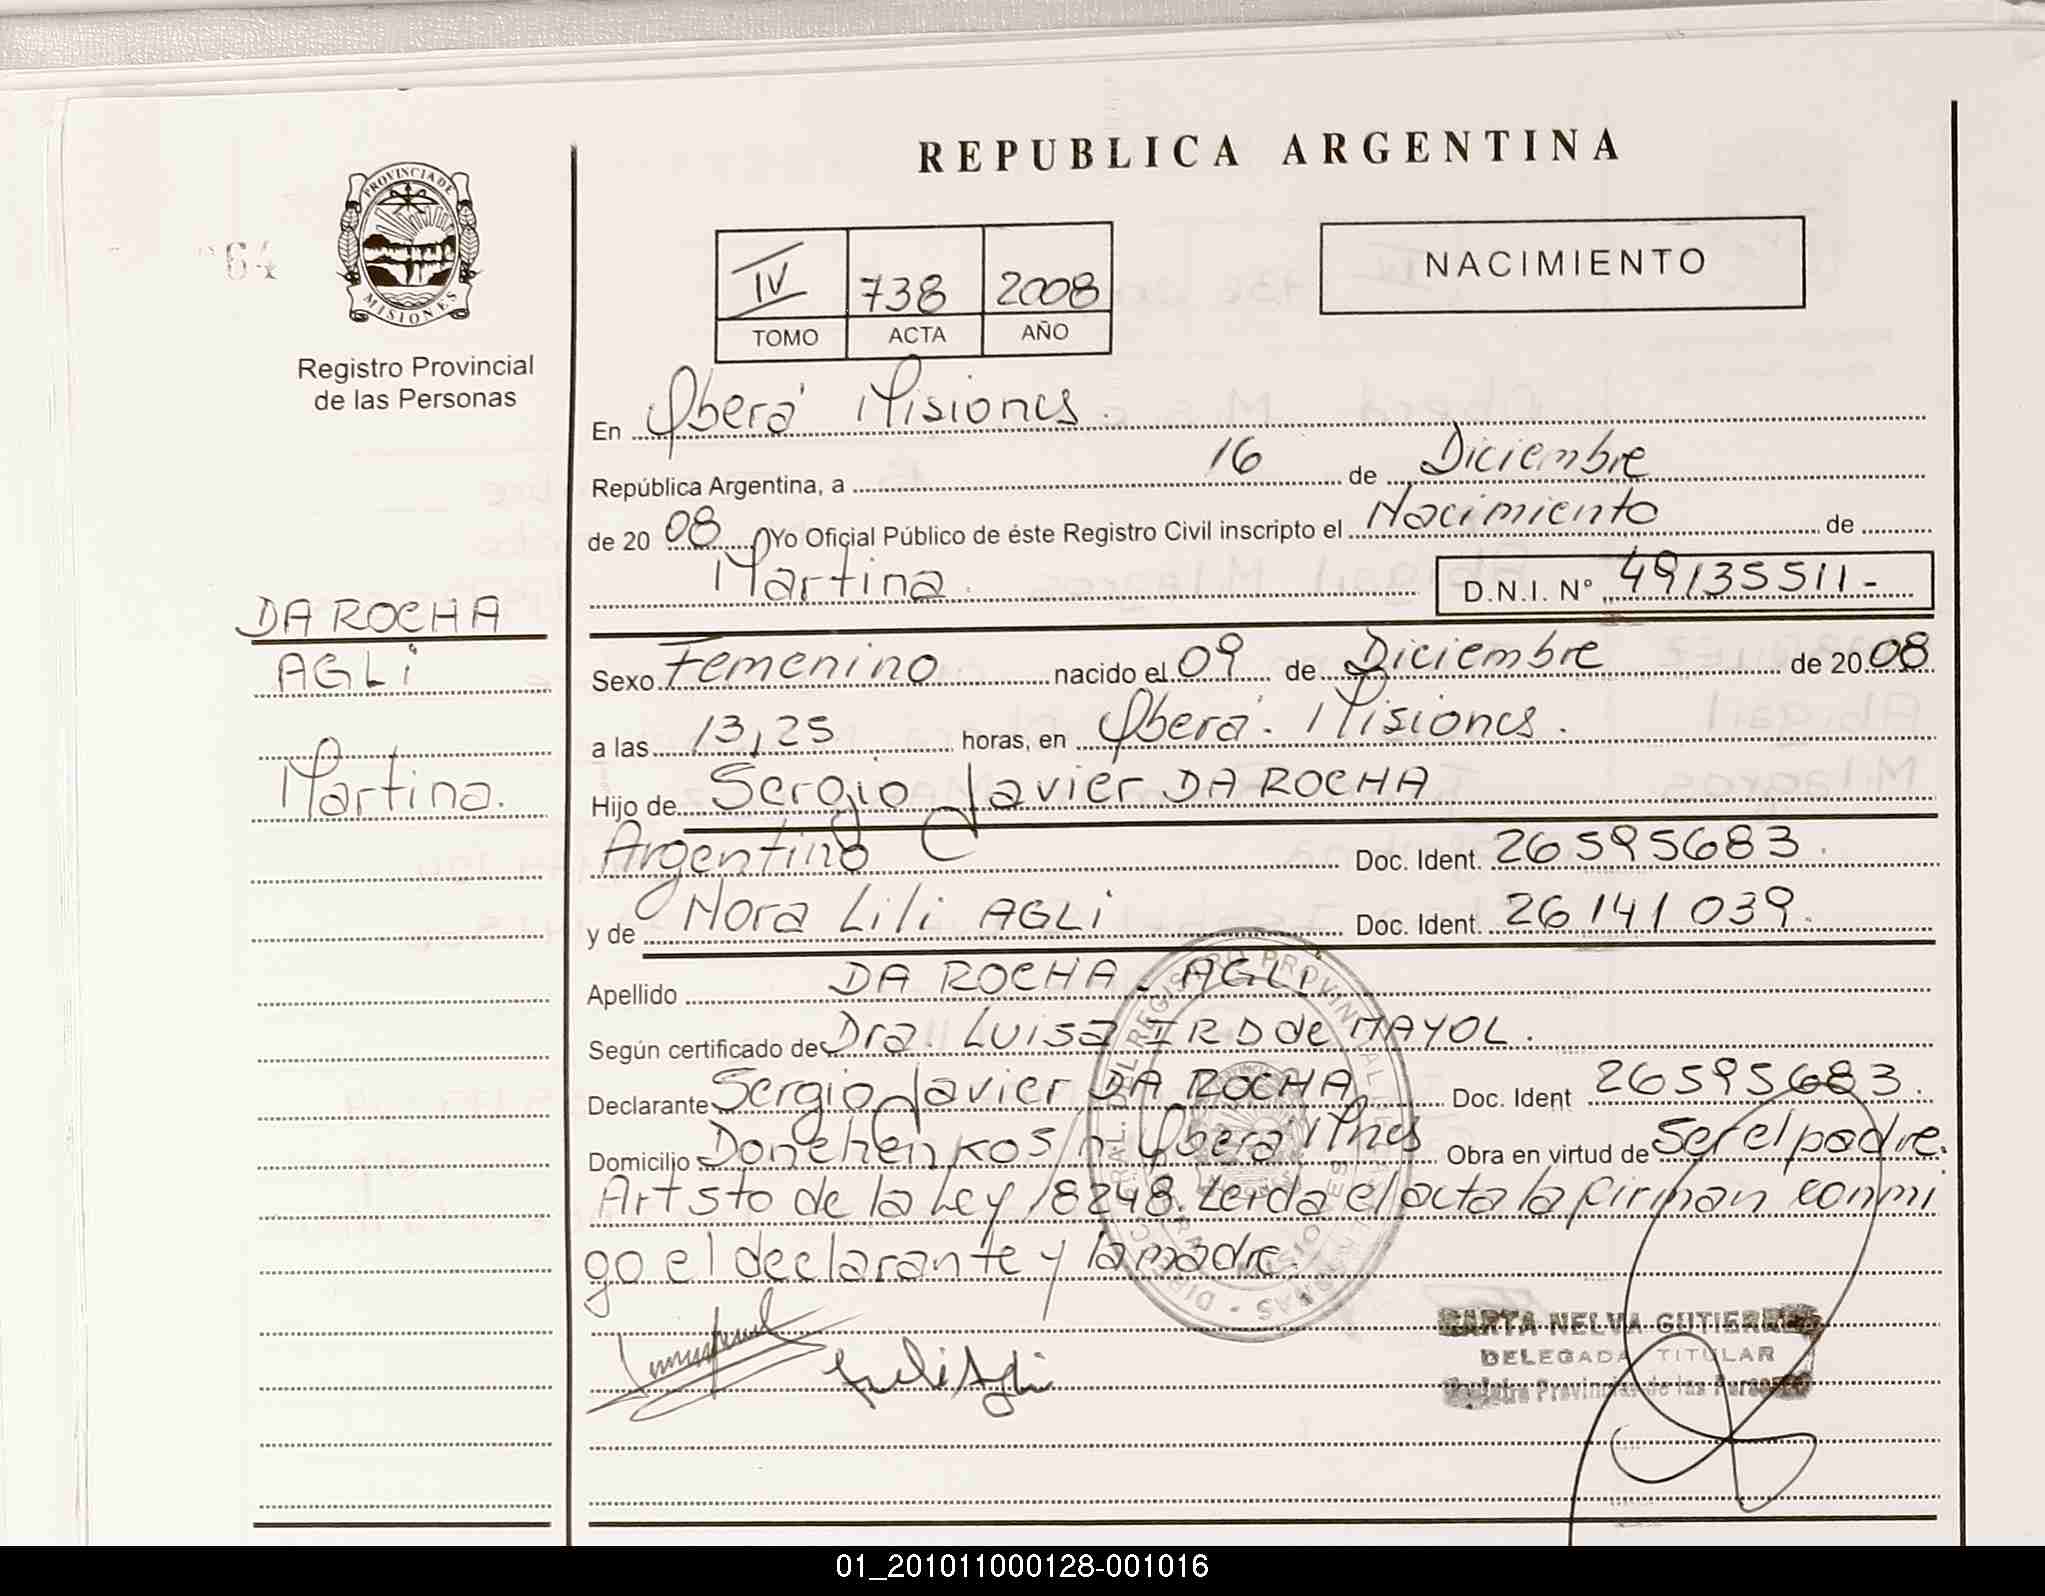 REPUBLICA ARGENTINA
64
PROVINCIA DE
MISIONES
Registro Provincial
de las Personas
IV 738 2008
TOMO ACTA AÑO
NACIMIENTO
En Oberá Misiones.
República Argentina, a 16 de Diciembre
de 20 08 Yo Oficial Público de éste Registro Civil inscripto el Nacimiento de
Martina. D.N.I. Nº 49135511-
DA ROCHA
AGLI
Martina.
Sexo Femenino nacido el 09 de Diciembre de 20 08
a las 13,25 horas, en Oberá. Misiones.
Hijo de Sergio Javier DA ROCHA
Argentino Doc. Ident. 26595683.
y de Nora Lili AGLI Doc. Ident. 26141039.
Apellido DA ROCHA. AGLI
Según certificado de Dra. Luisa IRD de MAYOL.
Declarante Sergio Javier DA ROCHA Doc. Ident 26595683.
Domicilio s/n Oberá Mnes Obra en virtud de Ser el padre.
Art 5to de la Ley 18248. Leida el acta la firman conmi
go el declarante y la madre.
NELVA GUTIERREZ
DELEGADA TITULAR
Registro Provincial de las Personas
01_201011000128-001016